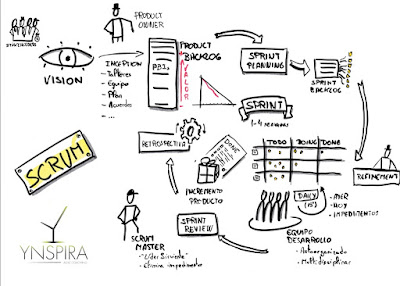 STAKEHOLDERS
PRODUCT
OWNER
VISIÓN
INCEPTION
- Talleres
- Equipo
- Plan
- Acuerdo
- ...
PRODUCT
BACKLOG
PBI
VALOR
SPRINT
PLANNING
SPRINT
BACKLOG
SPRINT
1-4 SEMANAS
TODO DOING DONE
REFINEMENT
DAILY
(15')
- AYER
- HOY
- IMPEDIMENTOS
EQUIPO
DESARROLLO
- Autoorganizado
- Multidisciplinar
SPRINT
REVIEW
INCREMENTO
PRODUCTO
DONE
RETROSPECTIVA
SCRUM
MASTER
- "Líder Sirviente"
- Elimina impedimentos
SCRUM
YNSPIRA